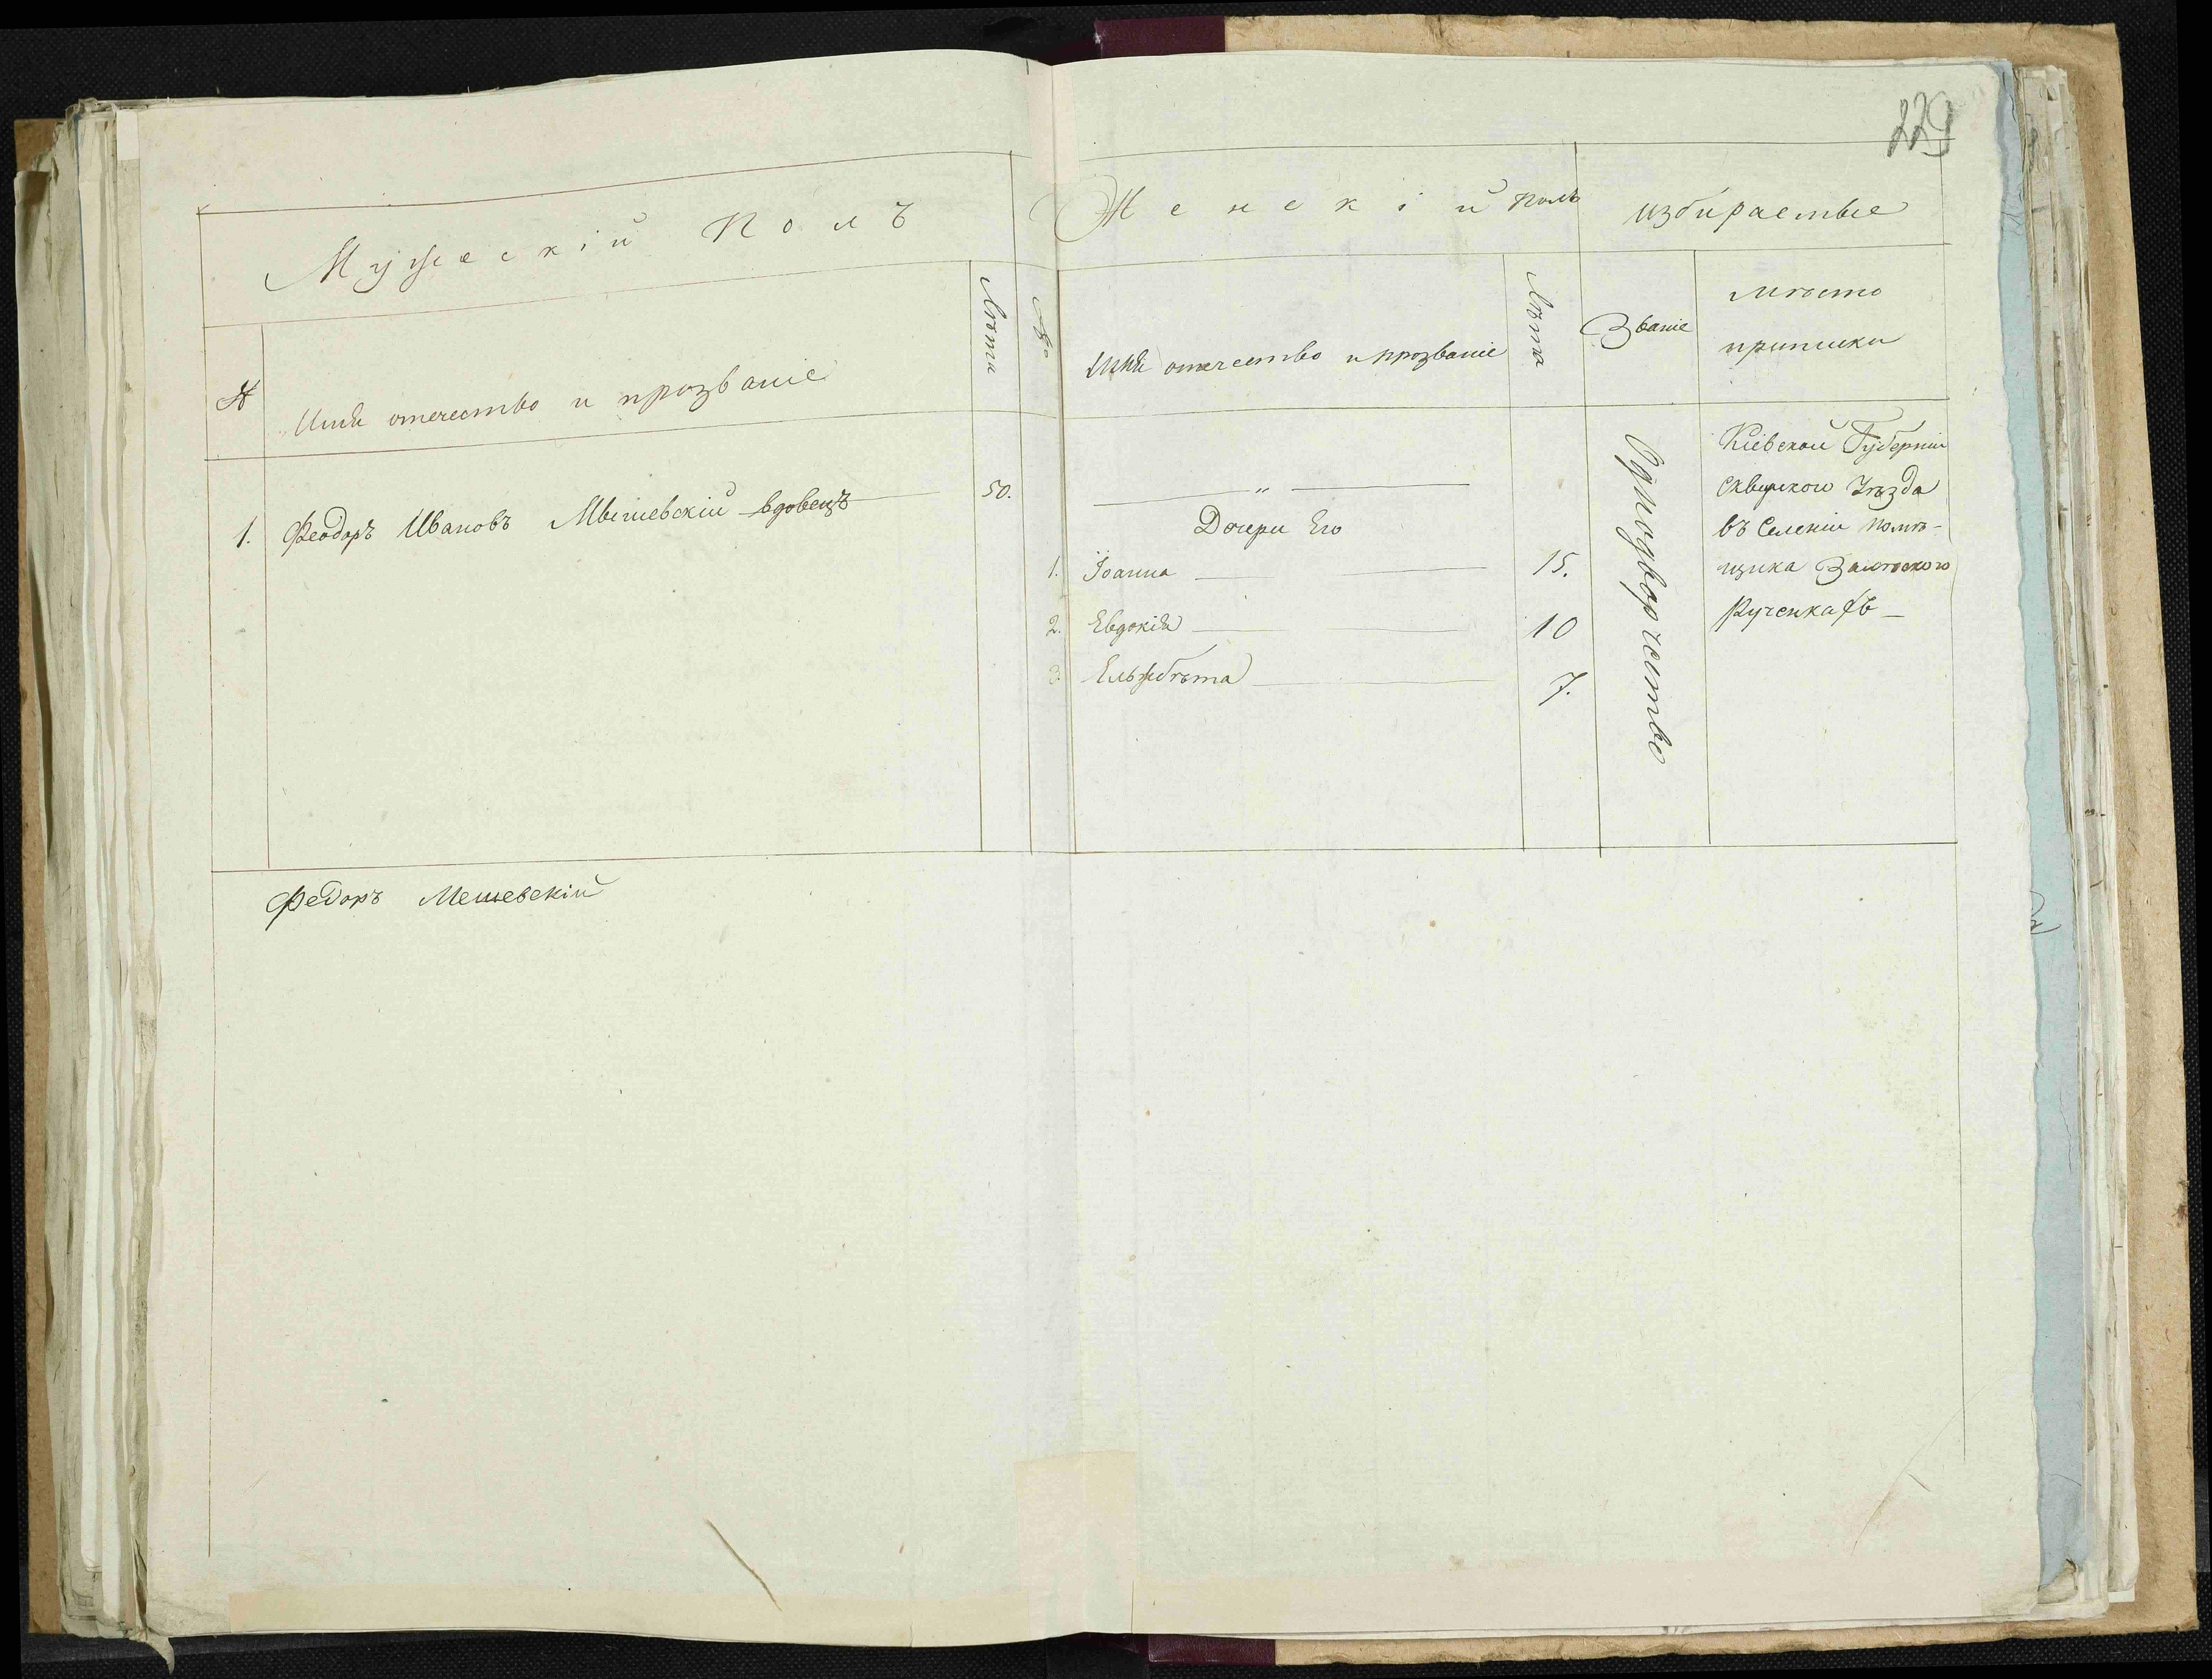 229
Мужескій Полъ
Женскій полъ
избираемые
№
Имя отечество и прозваніе
Лѣта
№
Имя отечество и прозваніе
Лѣта
Званіе
мѣсто
приписки
1. Феодоръ Ивановъ Мышевскій вдовецъ 50.
"
Дочери Его
1. Іоанна 15.
2. Евдокія 10
3. Ельжбѣта 7.
Однодворчество
Кіевской Губерніи
Сквирского Уѣзда
въ Селеніи помѣ-
щика
Ѳедоръ Мешевскій